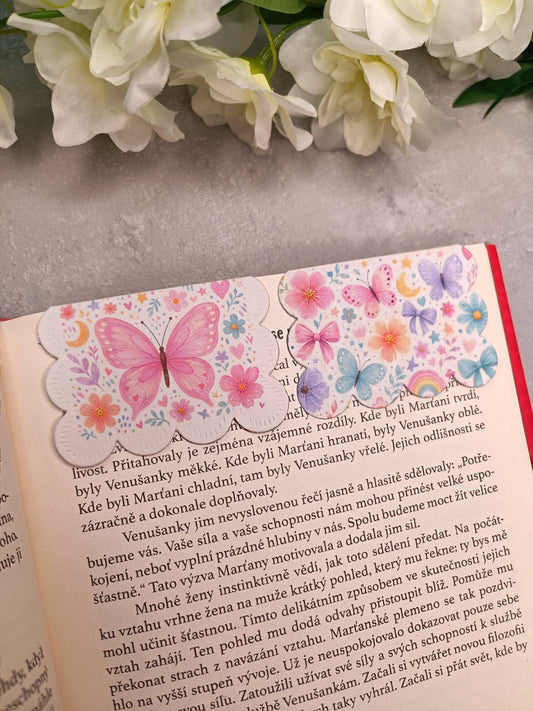 livost. Přitahovaly je zejména vzájemné rozdíly. Kde byli Marťani tvrdí,
byly Venušanky měkké. Kde byli Marťani hranatí, byly Venušanky oblé.
Kde byli Marťani chladní, tam byly Venušanky vřelé. Jejich odlišnosti se
zázračně a dokonale doplňovaly.
Venušanky jim nevyslovenou řečí jasně a hlasitě sdělovaly: „Potře-
bujeme vás. Vaše síla a vaše schopnosti nám mohou přinést velké uspo-
kojení, neboť vyplní prázdné hlubiny v nás. Spolu budeme moct žít velice
šťastně.“ Tato výzva Marťany motivovala a dodala jim sil.
Mnohé ženy instinktivně vědí, jak toto sdělení předat. Na počát-
ku vztahu vrhne žena na muže krátký pohled, který mu řekne: ty bys mě
mohl učinit šťastnou. Tímto delikátním způsobem ve skutečnosti jejich
vztah zahájí. Ten pohled mu dodá odvahy přistoupit blíž. Pomůže mu
překonat strach z navázání vztahu. Marťanské plemeno se tak pozdvi-
hlo na vyšší stupeň vývoje. Už je neuspokojovalo dokazovat pouze sebe
svou sílu. Zatoužili užívat své síly a svých schopností k službě
službě Venušankám. Začali si vytvářet novou filozofii
taky vyhrál. Začali si přát svět, kde by
hdy, když
schopný